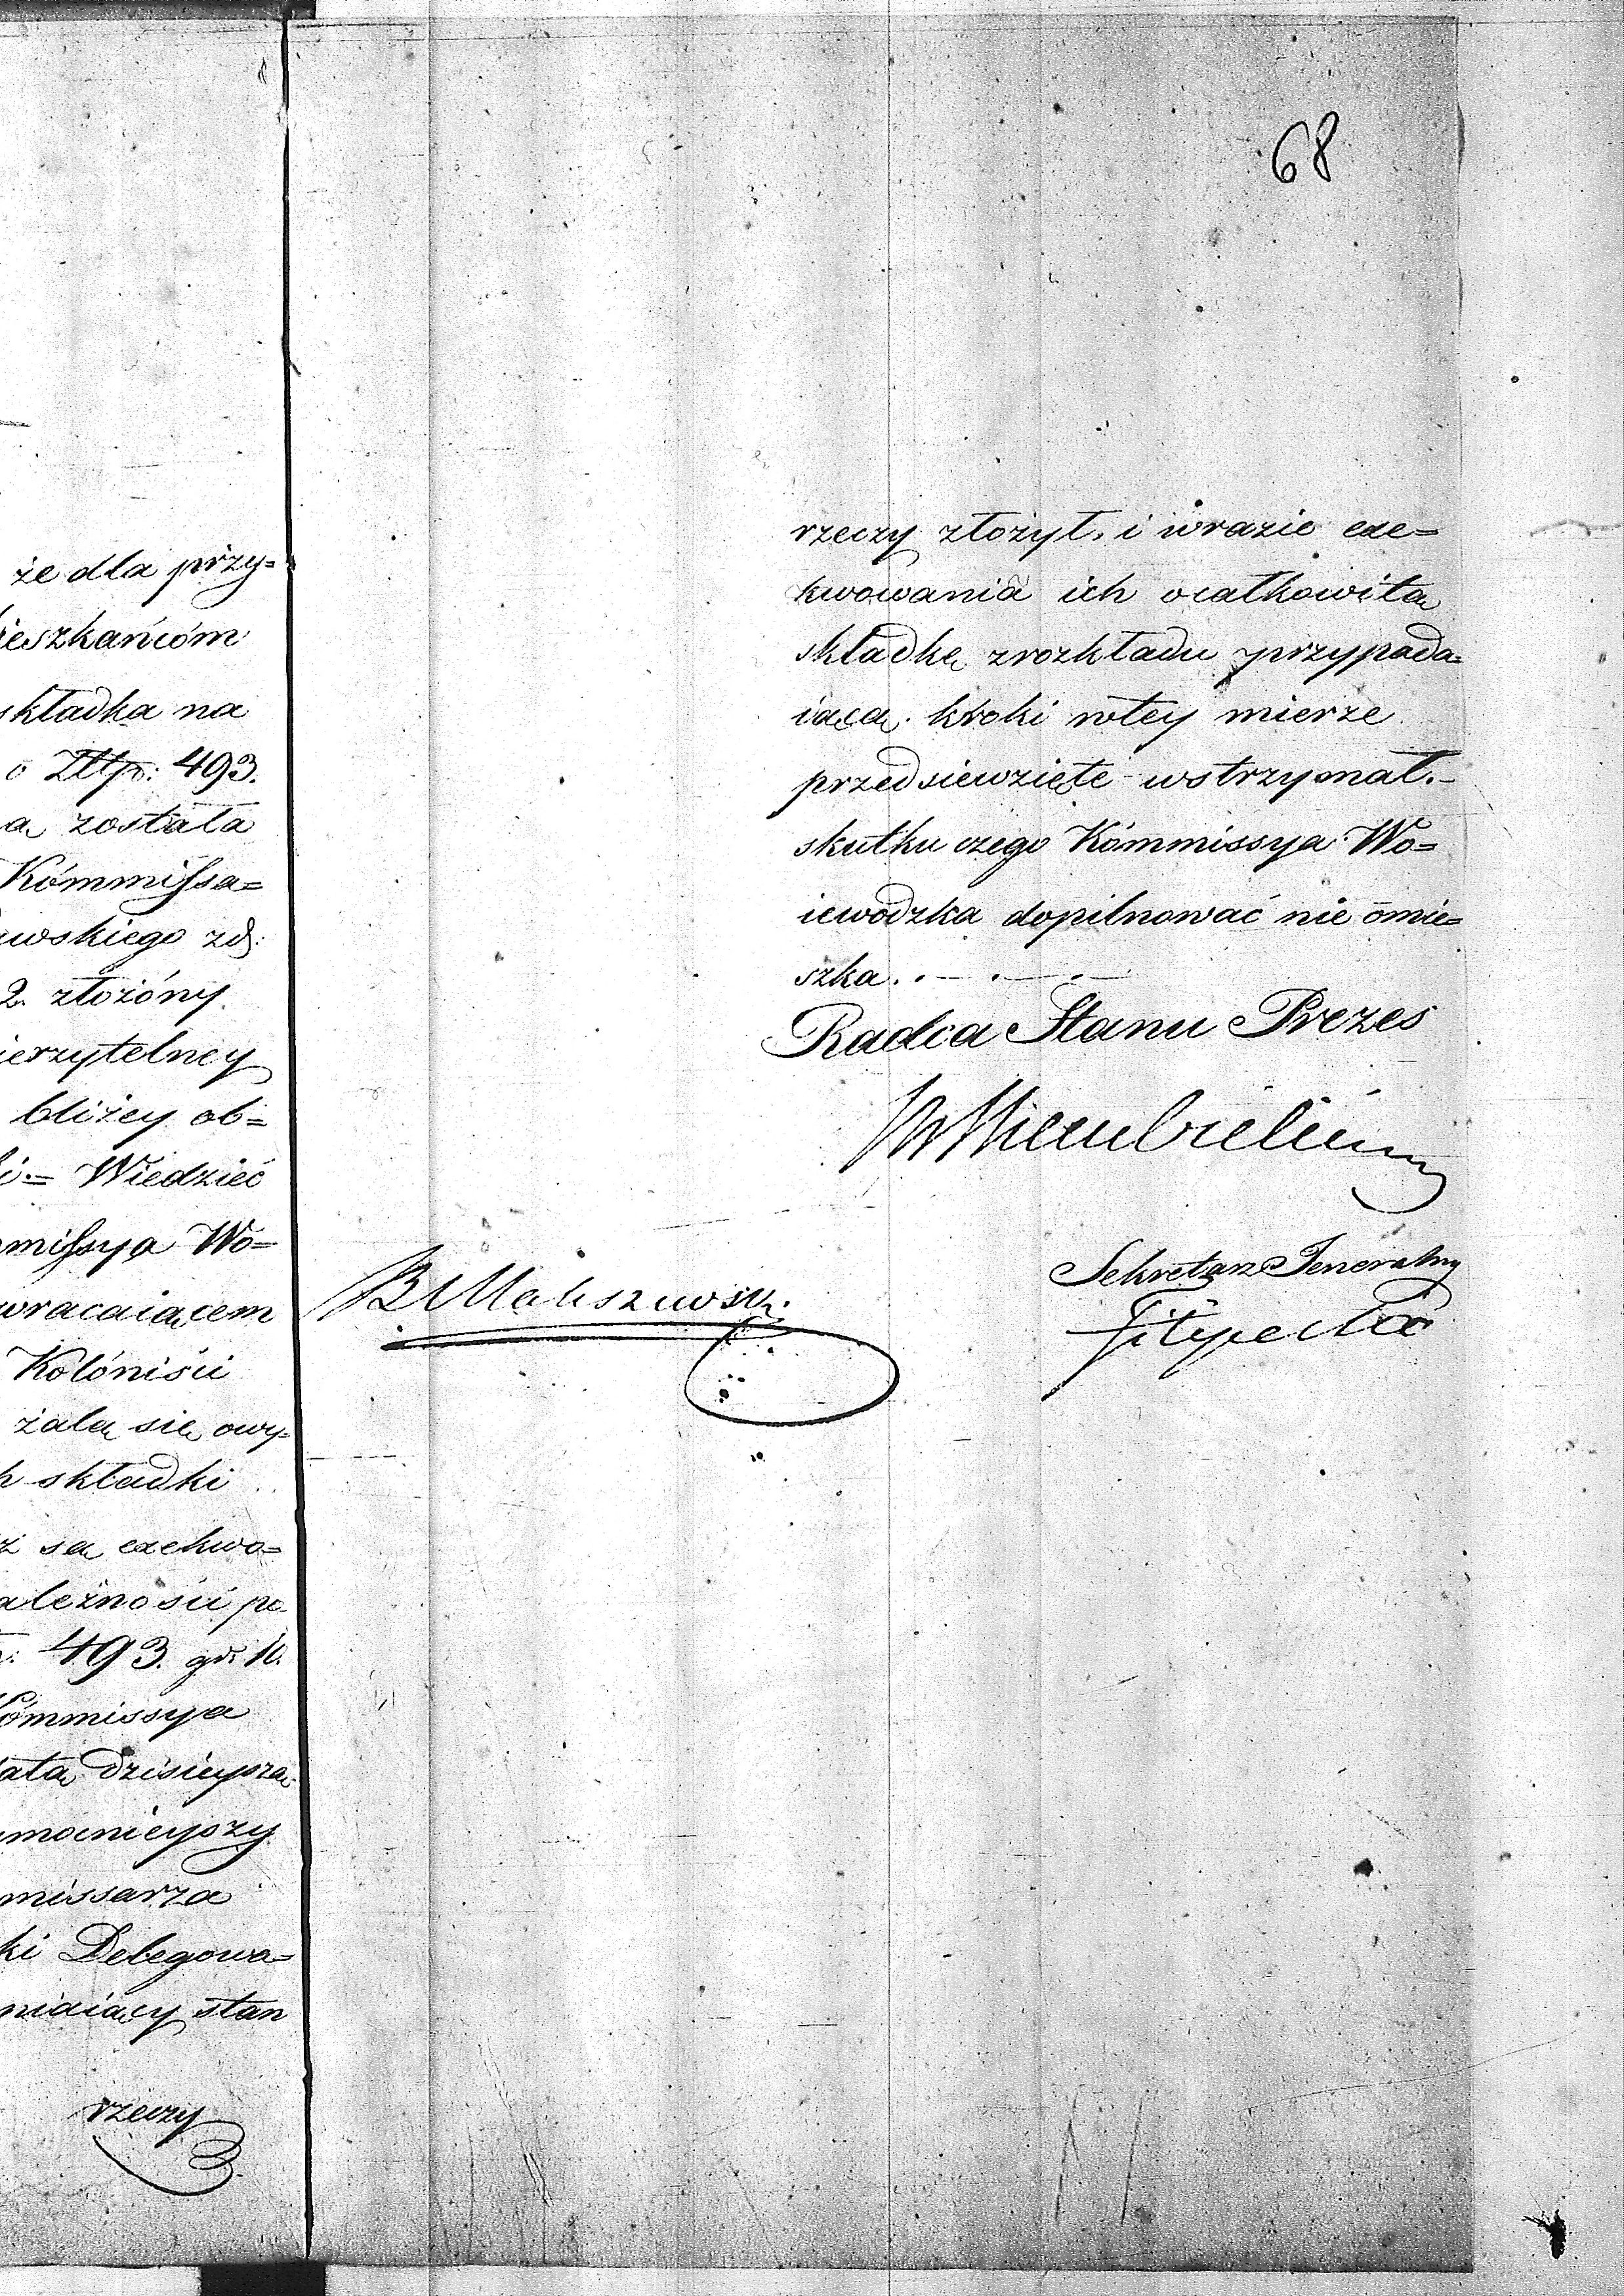 że dla przy=
ieszkańcóm
składka na
o Złtp: 493.
a, została
Kómmissa=
wskiego zd:
2. złożóny.
ierzytelney
bliżey ob=
i.= Wiedzieć
missya Wo=
wracaiącem
Kolóniści
żalą się owy=
składki
są exekwo=
ależności po
: 493. gr: 10.
ómmissya
datą dzisieyszą
mocnieyszy
missarza
ki Delegowa=
niaiący stan
rzeczy
68
rzeczy złożył, i wrazie exe=
kwowania ich ocałkowitą
składkę zrozkładu przypada=
iącą. kroki wtey mierze
przedsiewzięte wstrzymał.-
skutku czego Kómmissya Wo=
iewodzka dopilnować nie omie=
szka. . — . — . —
Radca Stanu Prezes
B Maliszewski.
Sekretarz Jeneralny
Filipecki